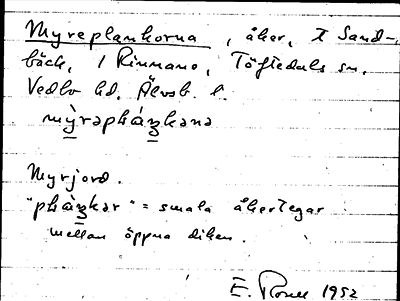 Myreplankorna, åker, t Sand-
bäck, / Rinmans, Töftedals sn.
Vedbo hd. Älvsb. l.
mỳ̱rəphàŋ̱kəṇə
Myrjord.
"phàŋ̱kər" = smala åkertegar
mellan öppna diken.
E. 1952